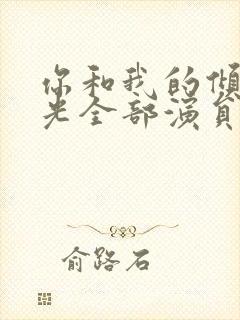 你和我的倾
光全部演员
俞路石